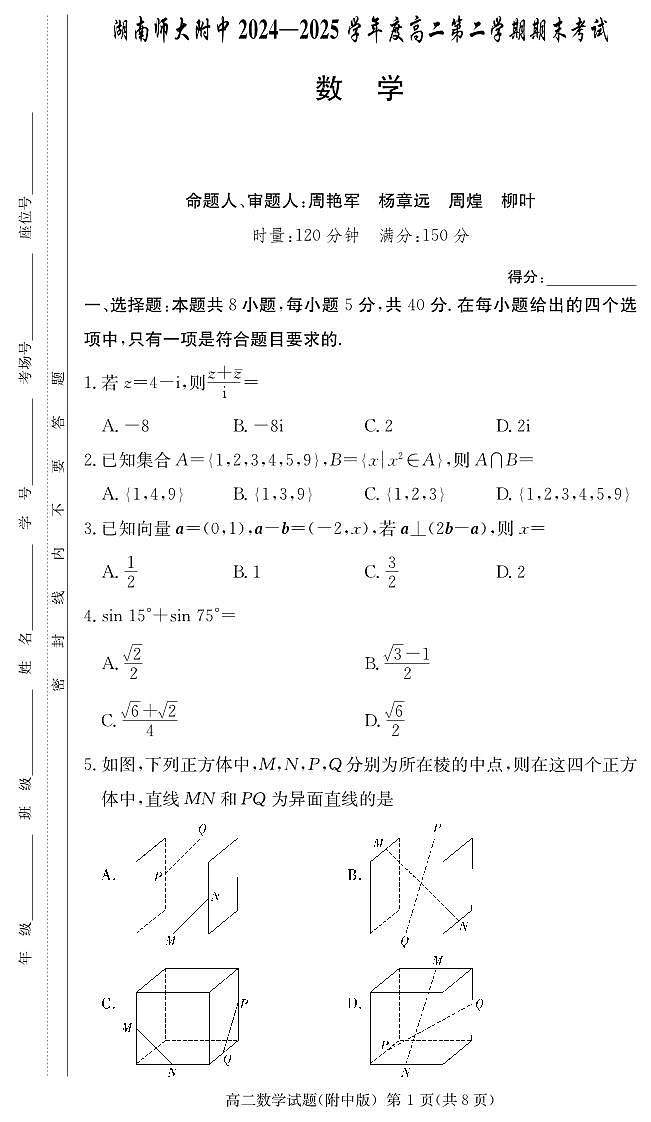 湖南师大附中 2024—2025 学年度高二第二学期期末考试
数 学
命题人、审题人:周艳军 杨章远 周煌 柳叶
时量:120 分钟 满分:150 分
得分:
一、选择题:本题共 8 小题,每小题 5 分,共 40 分. 在每小题给出的四个选
项中,只有一项是符合题目要求的.
1. 若 z=4-i,则(z+z̄)/i=
A. -8 B. -8i C. 2 D. 2i
2. 已知集合 A={1,2,3,4,5,9},B={x|x²∈A},则 A∩B=
A. {1,4,9} B. {1,3,9} C. {1,2,3} D. {1,2,3,4,5,9}
3. 已知向量 a=(0,1),a-b=(-2,x),若 a⊥(2b-a),则 x=
A. 1/2 B. 1 C. 3/2 D. 2
4. sin 15°+sin 75°=
A. √2/2 B. (√3-1)/2
C. (√6+√2)/4 D. √6/2
5. 如图,下列正方体中,M,N,P,Q 分别为所在棱的中点,则在这四个正方
体中,直线 MN 和 PQ 为异面直线的是
A. Q P N M
B. P M N Q
C. M P Q N
D. M Q P N
高二数学试题(附中版) 第 1 页(共 8 页)
座位号
考场号
学 号
姓 名
班 级
年 级
密 封 线 内 不 要 答 题